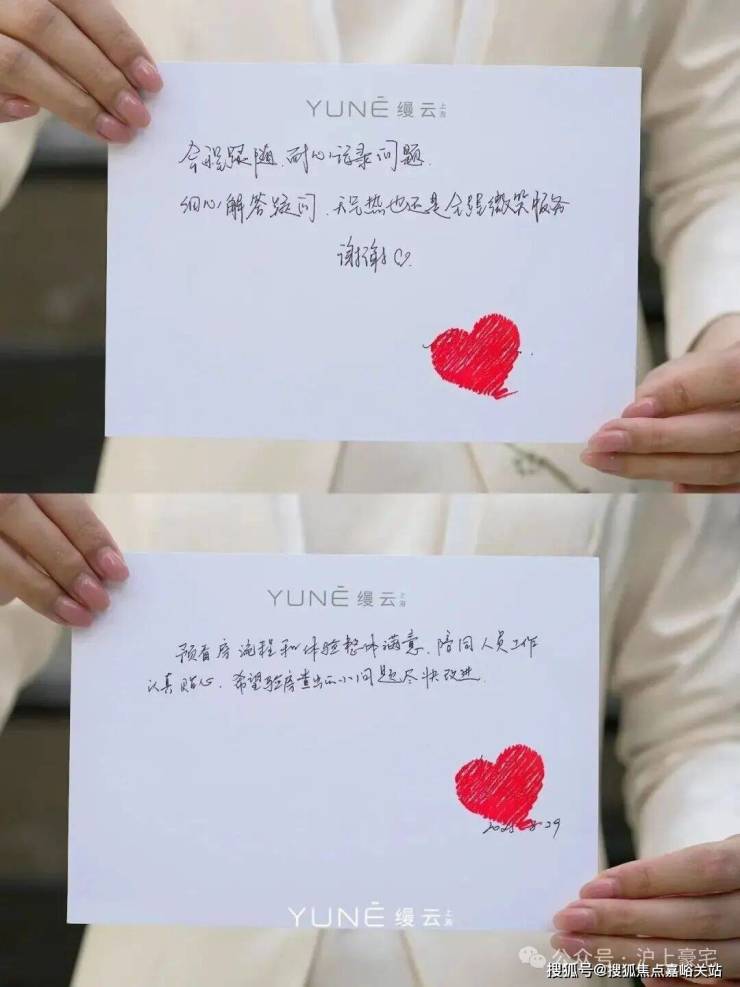 YUNĒ 缦云 上海
全程跟随、耐心记录问题.
细心解答疑问、天气热也还是全程微笑服务
谢谢♡.
YUNĒ 缦云 上海
预看房流程和体验整体满意、陪同人员工作
认真贴心.希望验房查出的小问题尽快改进.
2025-8-29
YUNĒ 缦云 上海
公众号·沪上豪宅
搜狐号@搜狐焦点嘉峪关站